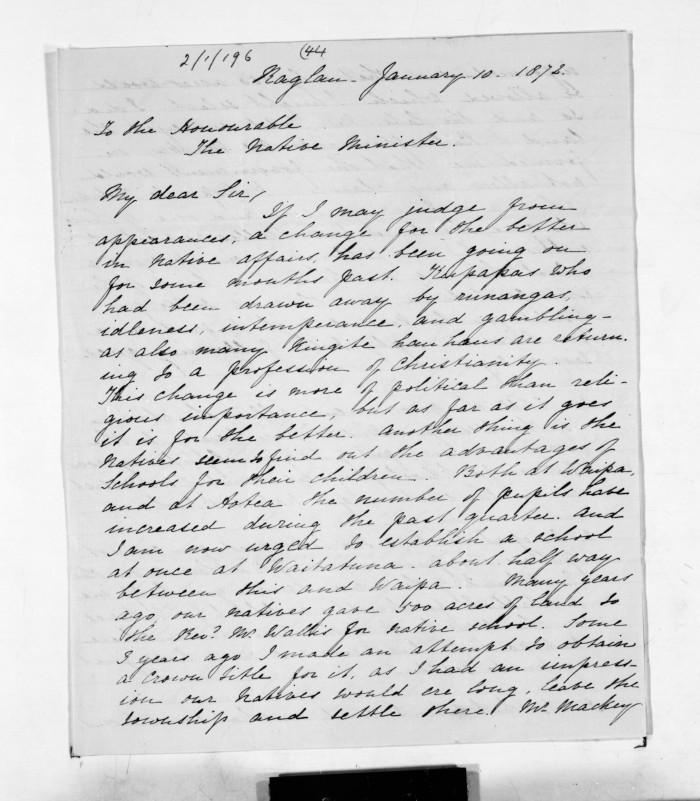 2/1/196 (44
Raglan. January 10. 1872.
To the Honourable
The Native Minister.
My dear Sir,
If I may judge from
appearances, a change for the better
in Native affairs, has been going on
for some months past. Kupapas who
had been drawn away by runangas,
idleness, intemperance, and gambling—
as also many Kingite hauhaus are return.
ing to a profession of Christianity.
This change is more of political than reli-
gious importance, but as far as it goes
it is for the better. Another thing is the
Natives seem to find out the advantages of
Schools for their children. Both at Waipa,
and at Aotea the number of pupils have
increased during the past quarter. And
I am now urged to establish a school
at once at Waitatuna. about half way
between this and Waipa. Many years
ago, our natives gave 400 acres of land to
the Revd. Mr. Wallis for native school. Some
3 years ago I made an attempt to obtain
a Crown title for it, as I had an impress-
ion our Natives would ere long, leave the
township and settle there. Mr. Mackey